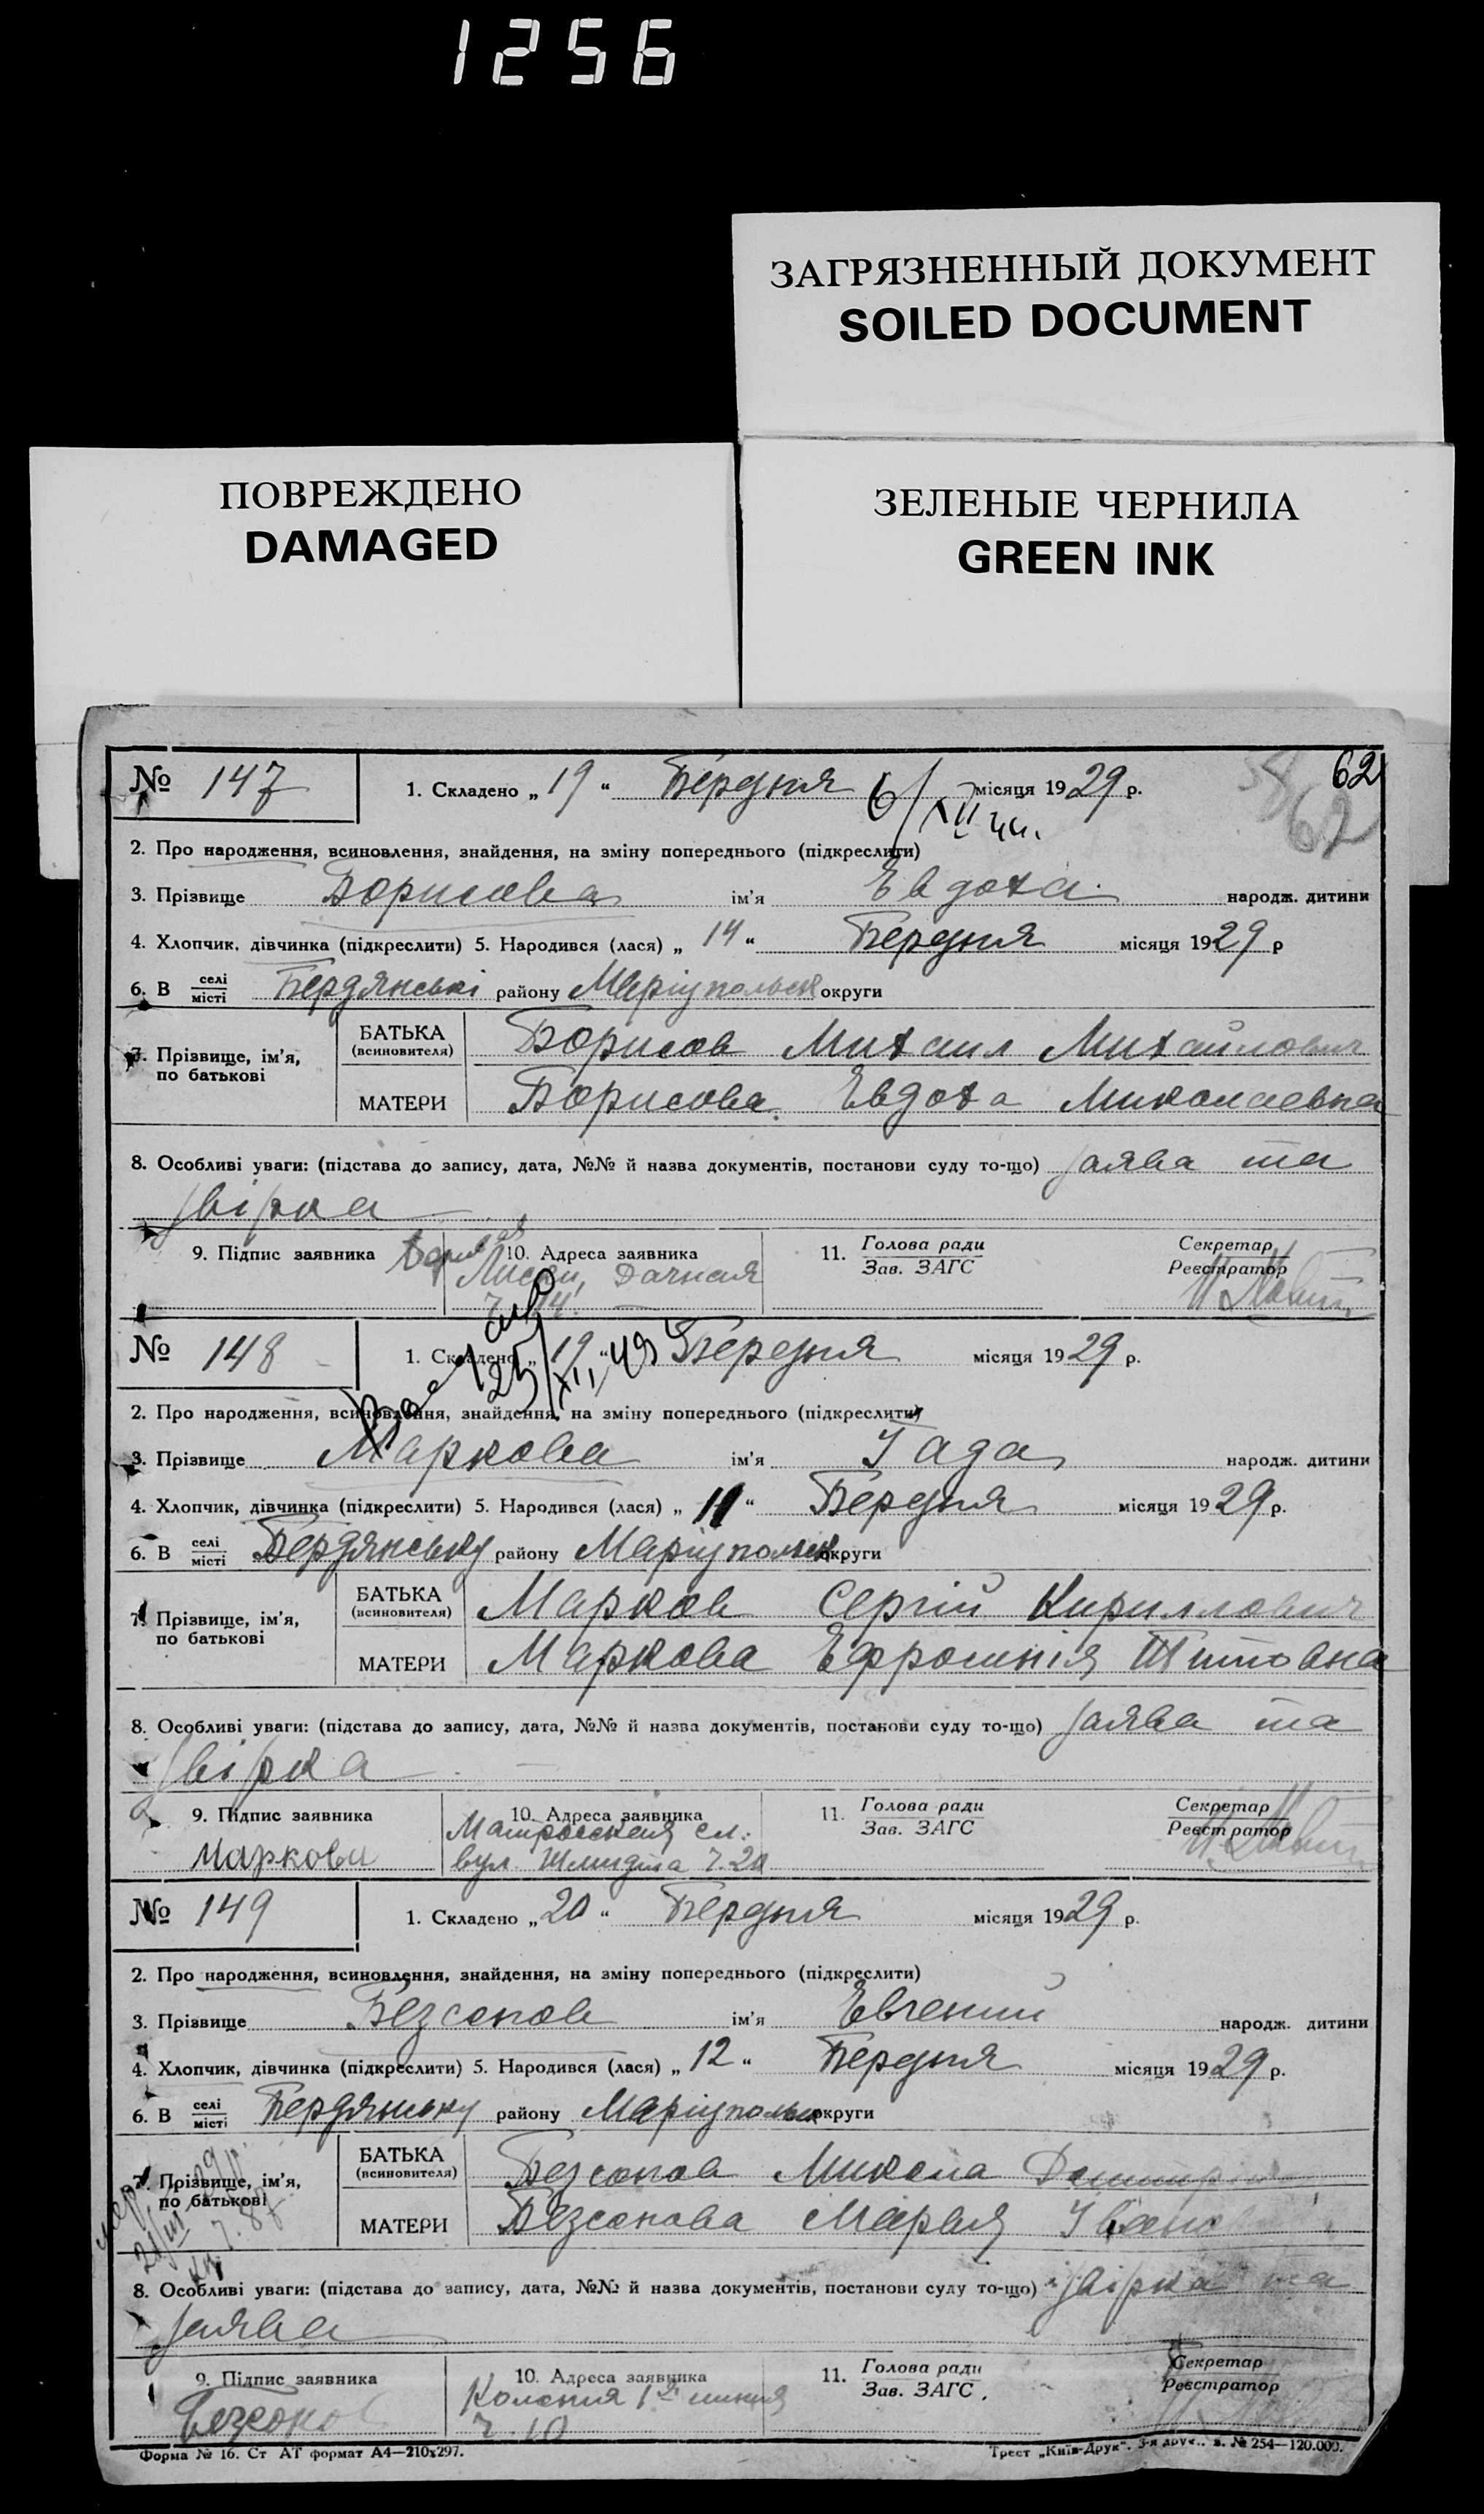 1256
ЗАГРЯЗНЕННЫЙ ДОКУМЕНТ
SOILED DOCUMENT
ПОВРЕЖДЕНО
DAMAGED
ЗЕЛЕНЫЕ ЧЕРНИЛА
GREEN INK
62
62
№ 147 1. Складено „19“ Березня місяця 1929 р.
6/XII
2. Про народження, всиновлення, знайдення, на зміну попереднього (підкреслити)
3. Прізвище Борисова ім'я Евдоха народж. дитини
4. Хлопчик, дівчинка (підкреслити) 5. Народився (лася) „14“ Березня місяця 1929 р
6. В селі/місті Бердянські району Маріупольськ округи
7. Прізвище, ім'я, по батькові
БАТЬКА (всиновителя) Борисов Михаил Михайлович
МАТЕРИ Борисова Евдоха Миколаевна
8. Особливі уваги: (підстава до запису, дата, №№ й назва документів, постанови суду то-що) заява та
звірка
9. Підпис заявника 10. Адреса заявника 11. Голова ради/Зав. ЗАГС Секретар/Реєстратор
Дачная
№ 148 1. Складено „19“ Березня місяця 1929 р.
25/XII 49
2. Про народження, всиновлення, знайдення, на зміну попереднього (підкреслити)
3. Прізвище Маркова ім'я Гада народж. дитини
4. Хлопчик, дівчинка (підкреслити) 5. Народився (лася) „11“ Березня місяця 1929 р.
6. В селі/місті Бердянську району Маріупольськ округи
7. Прізвище, ім'я, по батькові
БАТЬКА (всиновителя) Марков Сергій Кириллович
МАТЕРИ Маркова Ефросинія Титовна
8. Особливі уваги: (підстава до запису, дата, №№ й назва документів, постанови суду то-що) заява та
звірка
9. Підпис заявника 10. Адреса заявника 11. Голова ради/Зав. ЗАГС Секретар/Реєстратор
Матросская сл.
Маркова вул. Шмидта ч. 20
№ 149 1. Складено „20“ Березня місяця 1929 р.
2. Про народження, всиновлення, знайдення, на зміну попереднього (підкреслити)
3. Прізвище Безсонов ім'я Евгений народж. дитини
4. Хлопчик, дівчинка (підкреслити) 5. Народився (лася) „12“ Березня місяця 1929 р.
6. В селі/місті Бердянську району Маріупольськ округи
7. Прізвище, ім'я, по батькові
БАТЬКА (всиновителя) Безсонов Микола
МАТЕРИ Безсонова Мария
8. Особливі уваги: (підстава до запису, дата, №№ й назва документів, постанови суду то-що) звірка та
заява
9. Підпис заявника 10. Адреса заявника 11. Голова ради/Зав. ЗАГС. Секретар/Реєстратор
Колония 1я линия
ч. 10
Форма № 16. Ст АТ формат А4—210х297.
Трест „Київ-Друк“. 3-я друк.. з. № 254—120.000.